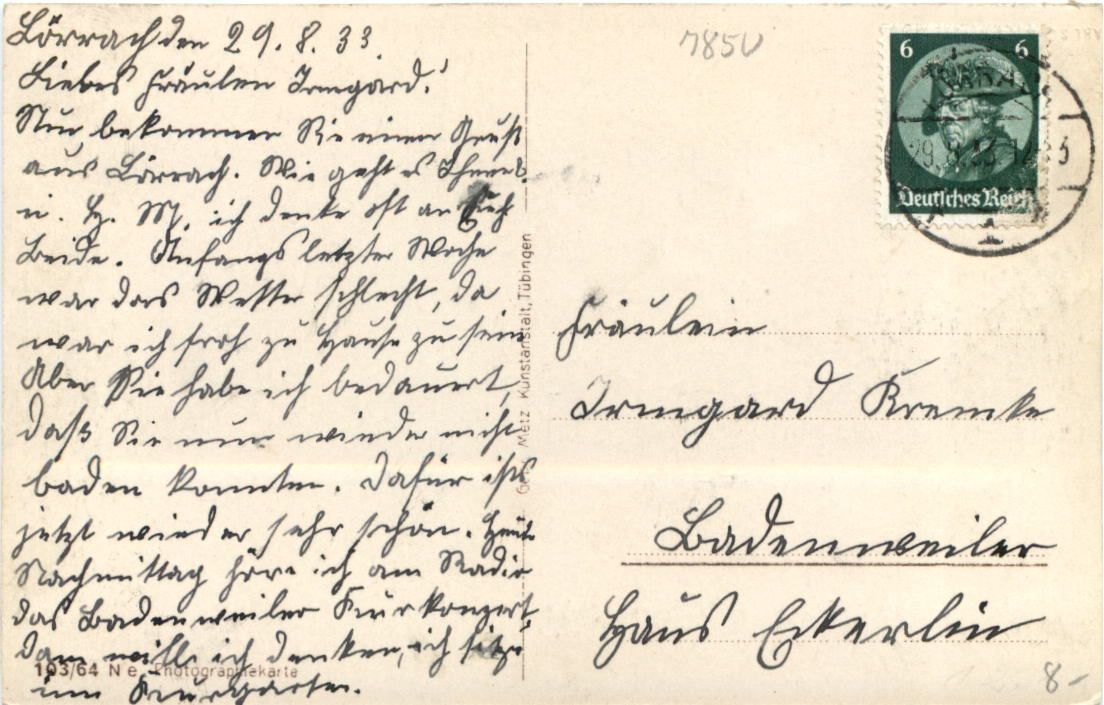 Lörrach den 29.8.33.
Liebes Fräulein Irmgard!
Nun bekommen Sie einen Gruß
aus Lörrach. Wie geht es Ihnen
u. H. M, ich denke oft an Euch
Beide. Anfangs letzter Woche
war das Wetter schlecht, da
war ich froh zu Hause zu sein
Aber Sie habe ich bedauert,
daß Sie nun wieder nicht
baden konnten. Dafür ists
jetzt wieder sehr schön. Heute
Nachmittag höre ich am Radio
das Badenweiler Kurkonzert
dann will ich denken, ich sitze
im Kurgarten.
193/64 N e Photographiekarte
Metz Kunstanstalt, Tübingen
785V
6 6
Deutsches Reich
Fräulein
Irmgard Kremke
Badenweiler
Haus Eckerlin
8-